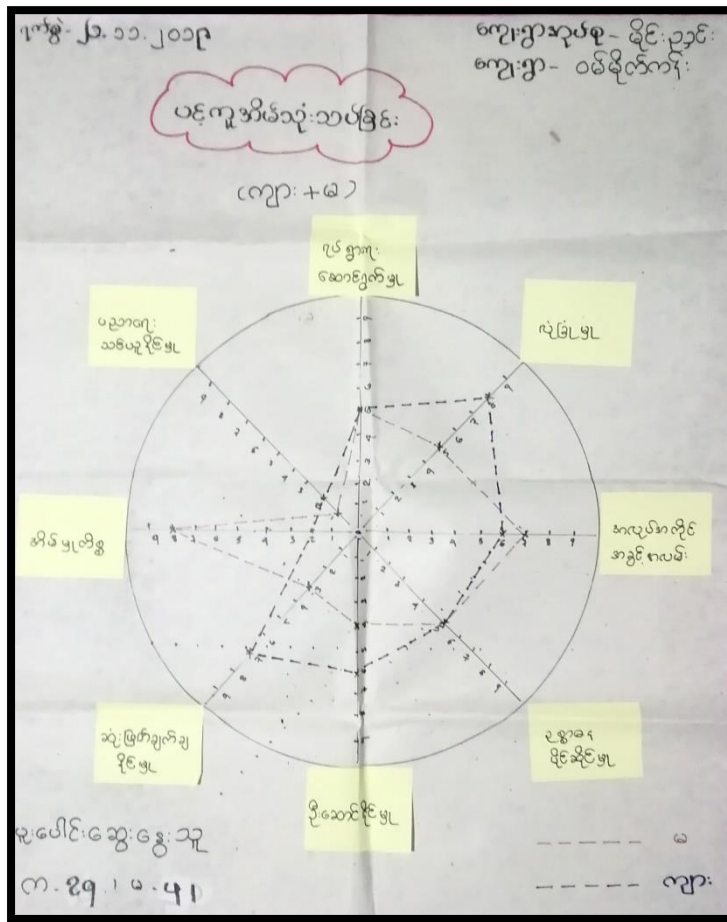 ရက်စွဲ - ၂၁.၁၁.၂၀၁၉
ကျေးရွာအုပ်စု - မိုင်းညှင်း
ကျေးရွာ - ဝမ်မိုက်ကန်း
ပင့်ကူအိမ်သုံးသပ်ခြင်း
(ကျား + မ)
ရပ်ရွာရေး
ဆောင်ရွက်မှု
လုံခြုံမှု
အလုပ်အကိုင်
အခွင့်အလမ်း
ဥစ္စာဓန
ပိုင်ဆိုင်မှု
ဦးဆောင်နိုင်မှု
ဆုံးဖြတ်ချက်ချ
နိုင်မှု
အိမ်မှုကိစ္စ
ပညာရေး
သင်ယူနိုင်မှု
ပူးပေါင်းဆွေးနွေးသူ
က - 29 ၊ မ - 41
----- မ
----- ကျား